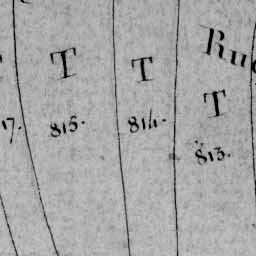 Ru
T
T
T
815.
814.
813.
17.